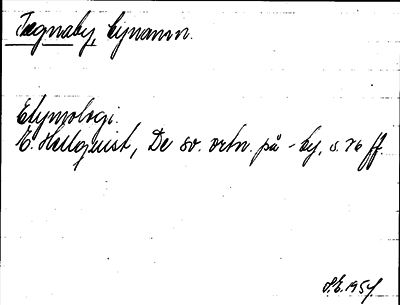 Tægnaby, bynamn.
Etymologi.
E. Hellquist, De sv. ortn. på -by, s. 76 ff.
S.E. 1954.